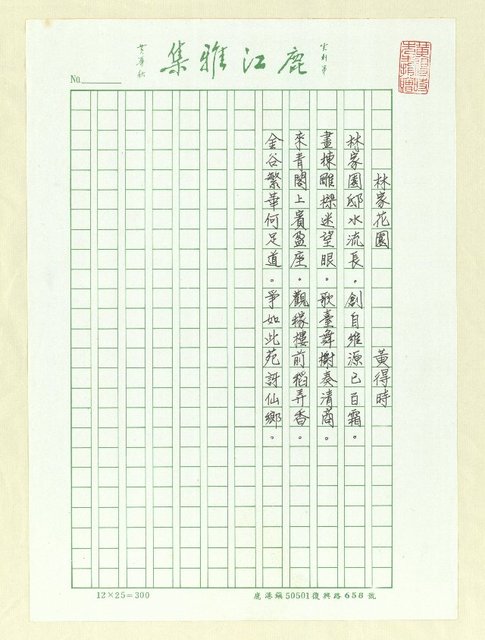 鹿江雅集
No.
林家花園 黃得時
林家園邸水流長。創自維源已百霜。
畫棟雕樑迷望眼。歌臺舞榭奏清商。
來青閣上賓盈座。觀稼樓前稻弄香。
金谷繁華何足道。爭如此苑訝仙鄉。
12×25=300
鹿港鎮50501復興路658號